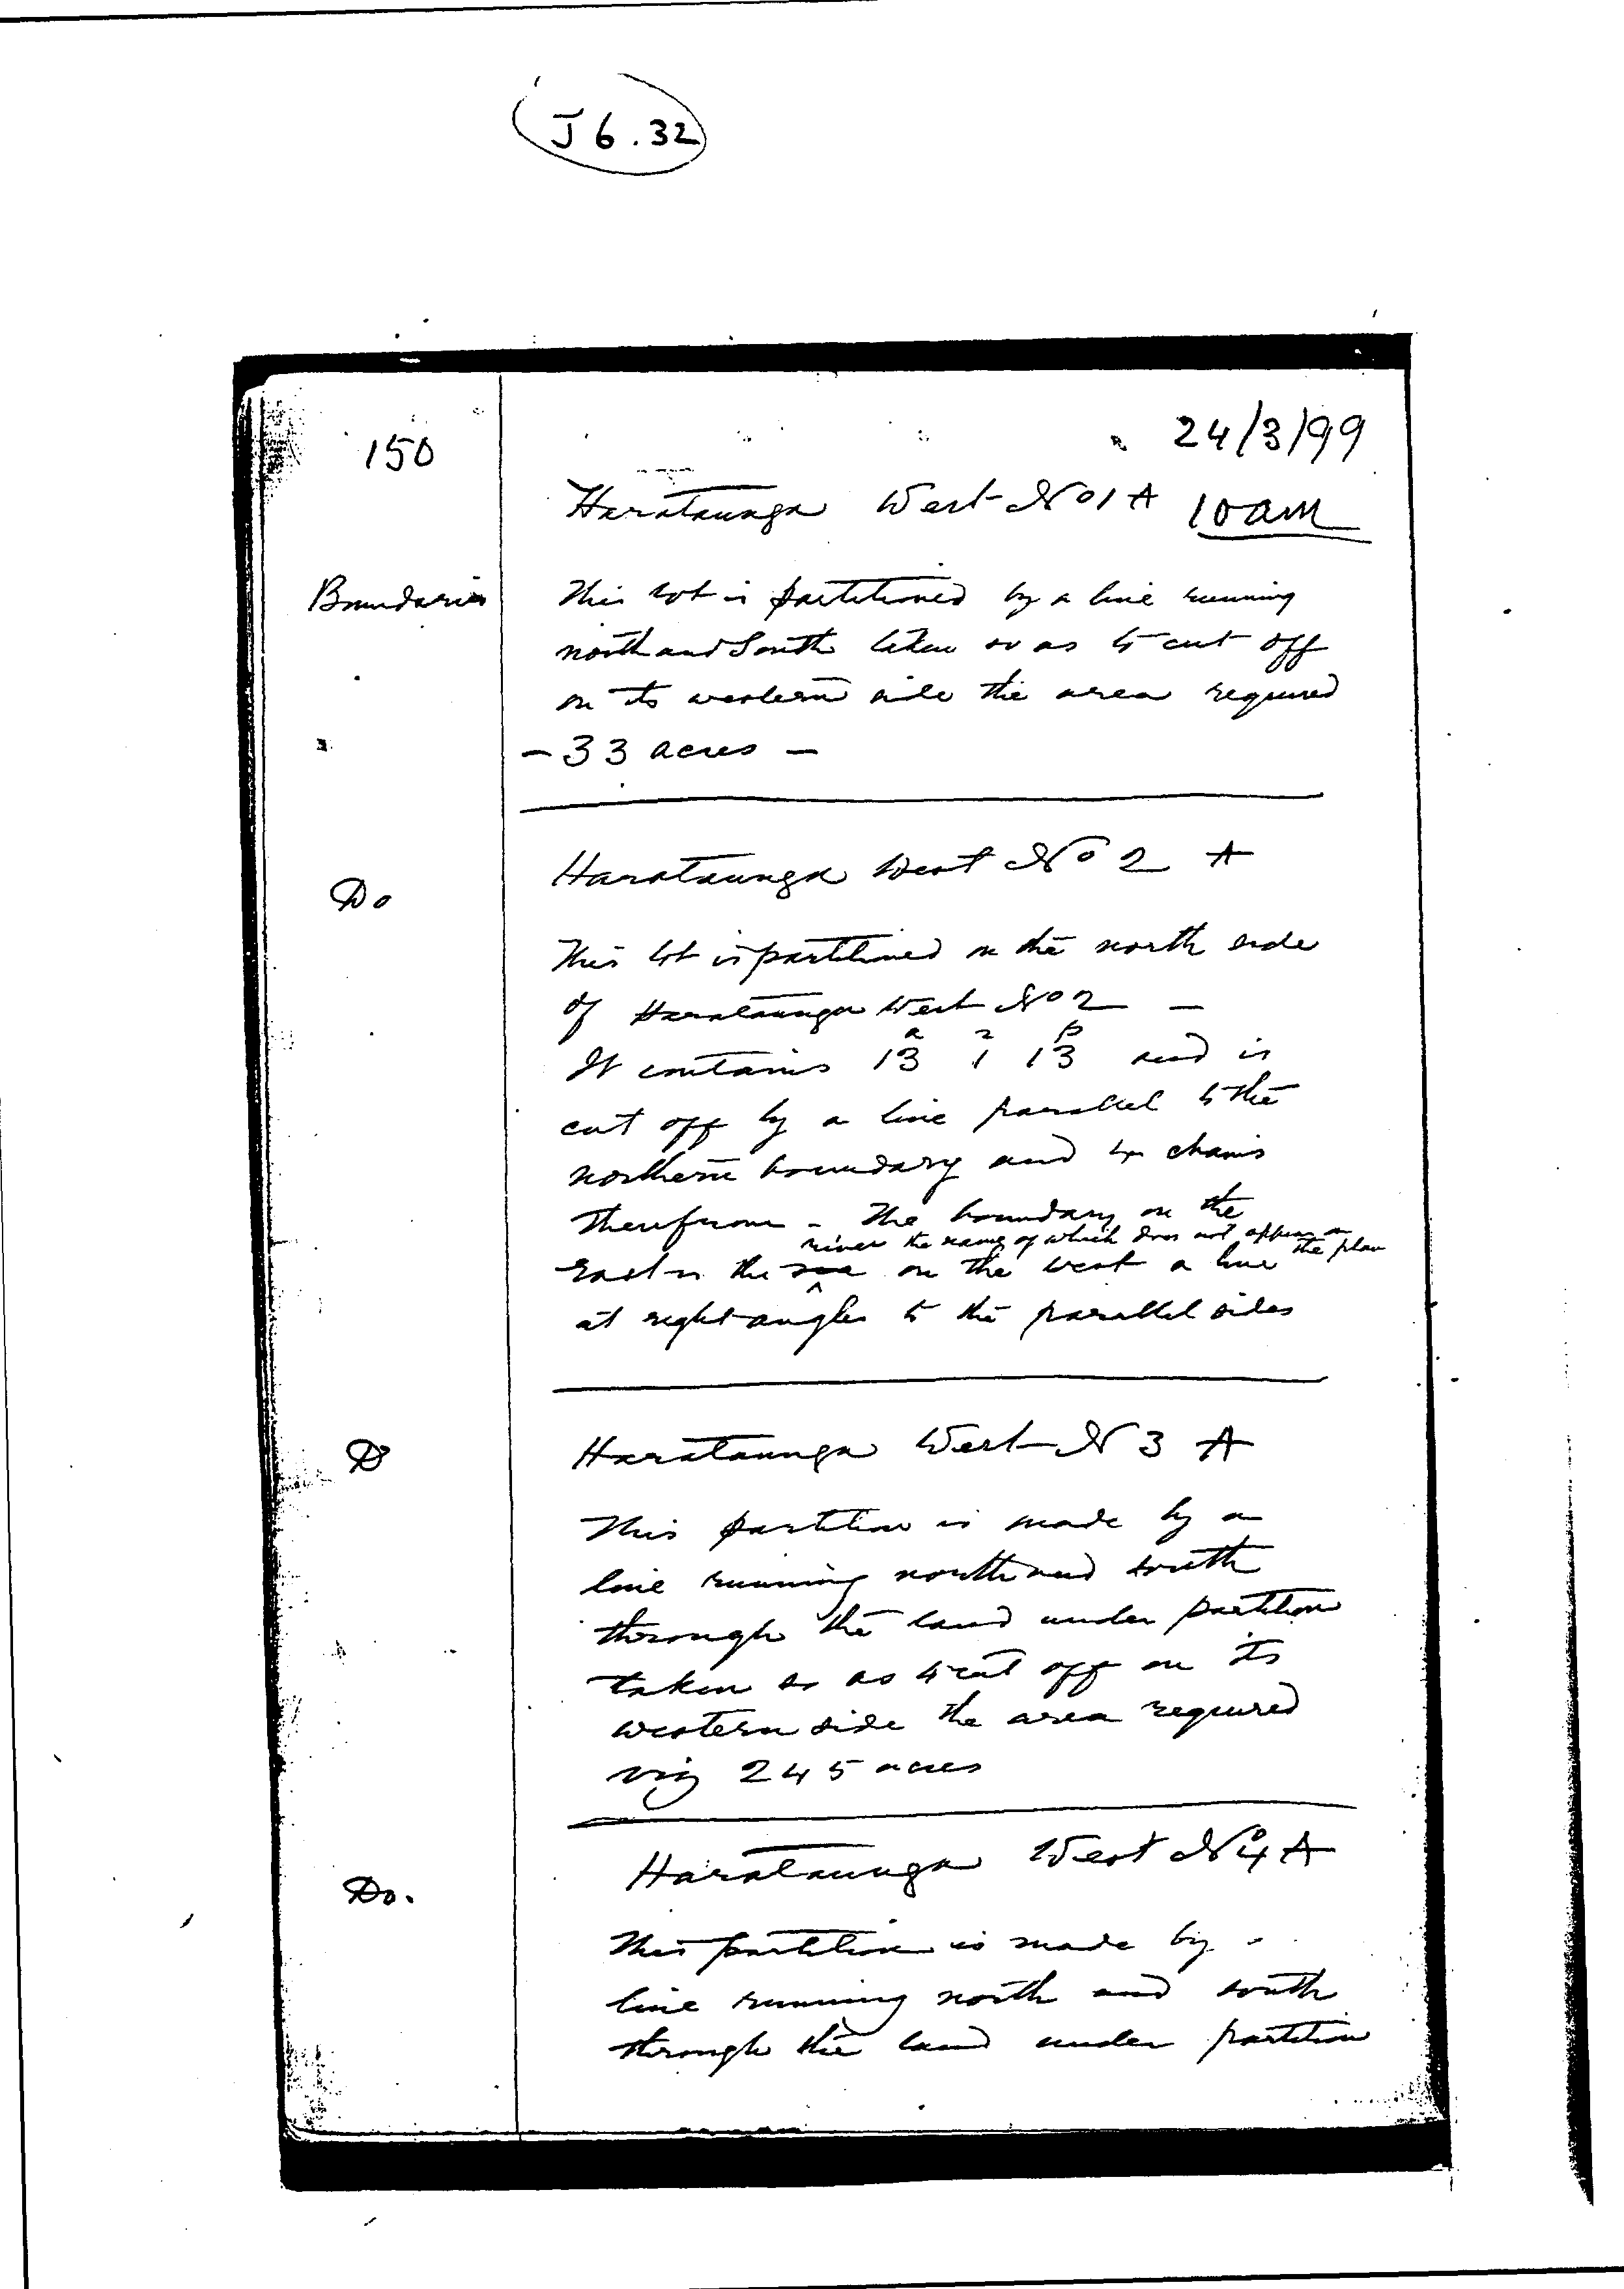 J 6.32
150
24/3/99
Harataunga West No 1 A 10 am
Boundaries
This lot is partitioned by a line running
north and South taken so as to cut off
on its western side the area required
- 33 acres -
Harataunga West No 2 A
Do
This lot is partitioned on the north side
of Harataunga West No 2 -
a r p
It contains 13 1 13 and is
cut off by a line parallel to the
northern boundary and 4 chains
therefrom - The boundary on the
river the name of which does not appear on the plan
East is the sea on the west a line
at right angles to the parallel sides
Do Harataunga West N 3 A
This partition is made by a
line running north and south
through the land under partition
taken so as to cut off on its
western side the area required
viz 245 acres
Harataunga West No 4 A
Do.
This partition is made by a
line running north and south
through the land under partition